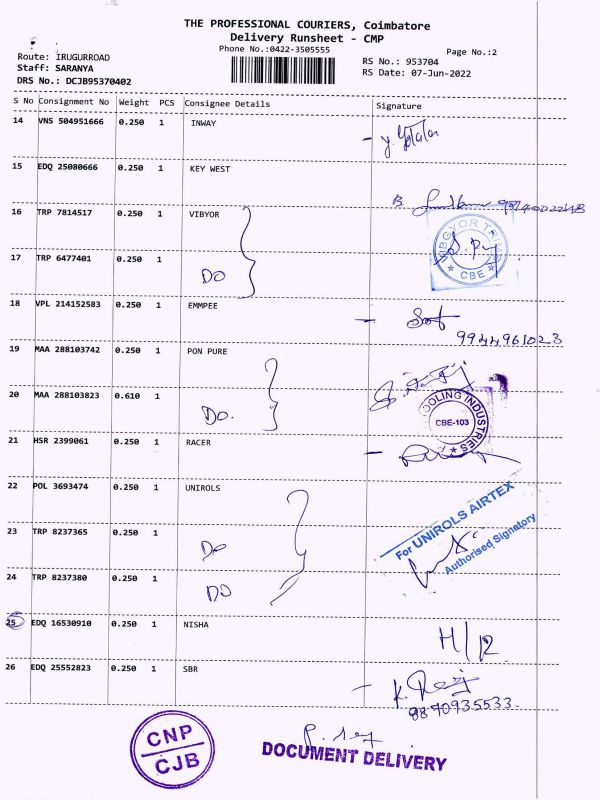 THE PROFESSIONAL COURIERS, Coimbatore
Delivery Runsheet - CMP
Phone No.:0422-3505555
Page No.:2
Route: IRUGURROAD
RS No.: 953704
Staff: SARANYA
RS Date: 07-Jun-2022
DRS No.: DCJB95370402
S No Consignment No Weight PCS Consignee Details Signature
14 VNS 504951666 0.250 1 INWAY
15 EDQ 25080666 0.250 1 KEY WEST
16 TRP 7814517 0.250 1 VIBYOR
17 TRP 6477401 0.250 1
DO
CBE
18 VPL 214152583 0.250 1 EMMPEE
9944961023
19 MAA 288103742 0.250 1 PON PURE
20 MAA 288103823 0.610 1
DO.
OOLING INDUSTRIES
CBE-103
21 HSR 2399061 0.250 1 RACER
22 POL 3693474 0.250 1 UNIROLS
For UNIROLS AIRTEX
Authorised Signatory
23 TRP 8237365 0.250 1
DO
24 TRP 8237380 0.250 1
DO
25 EDQ 16530910 0.250 1 NISHA
H/12
26 EDQ 25552823 0.250 1 SBR
9870935533
CNP
CJB
DOCUMENT DELIVERY